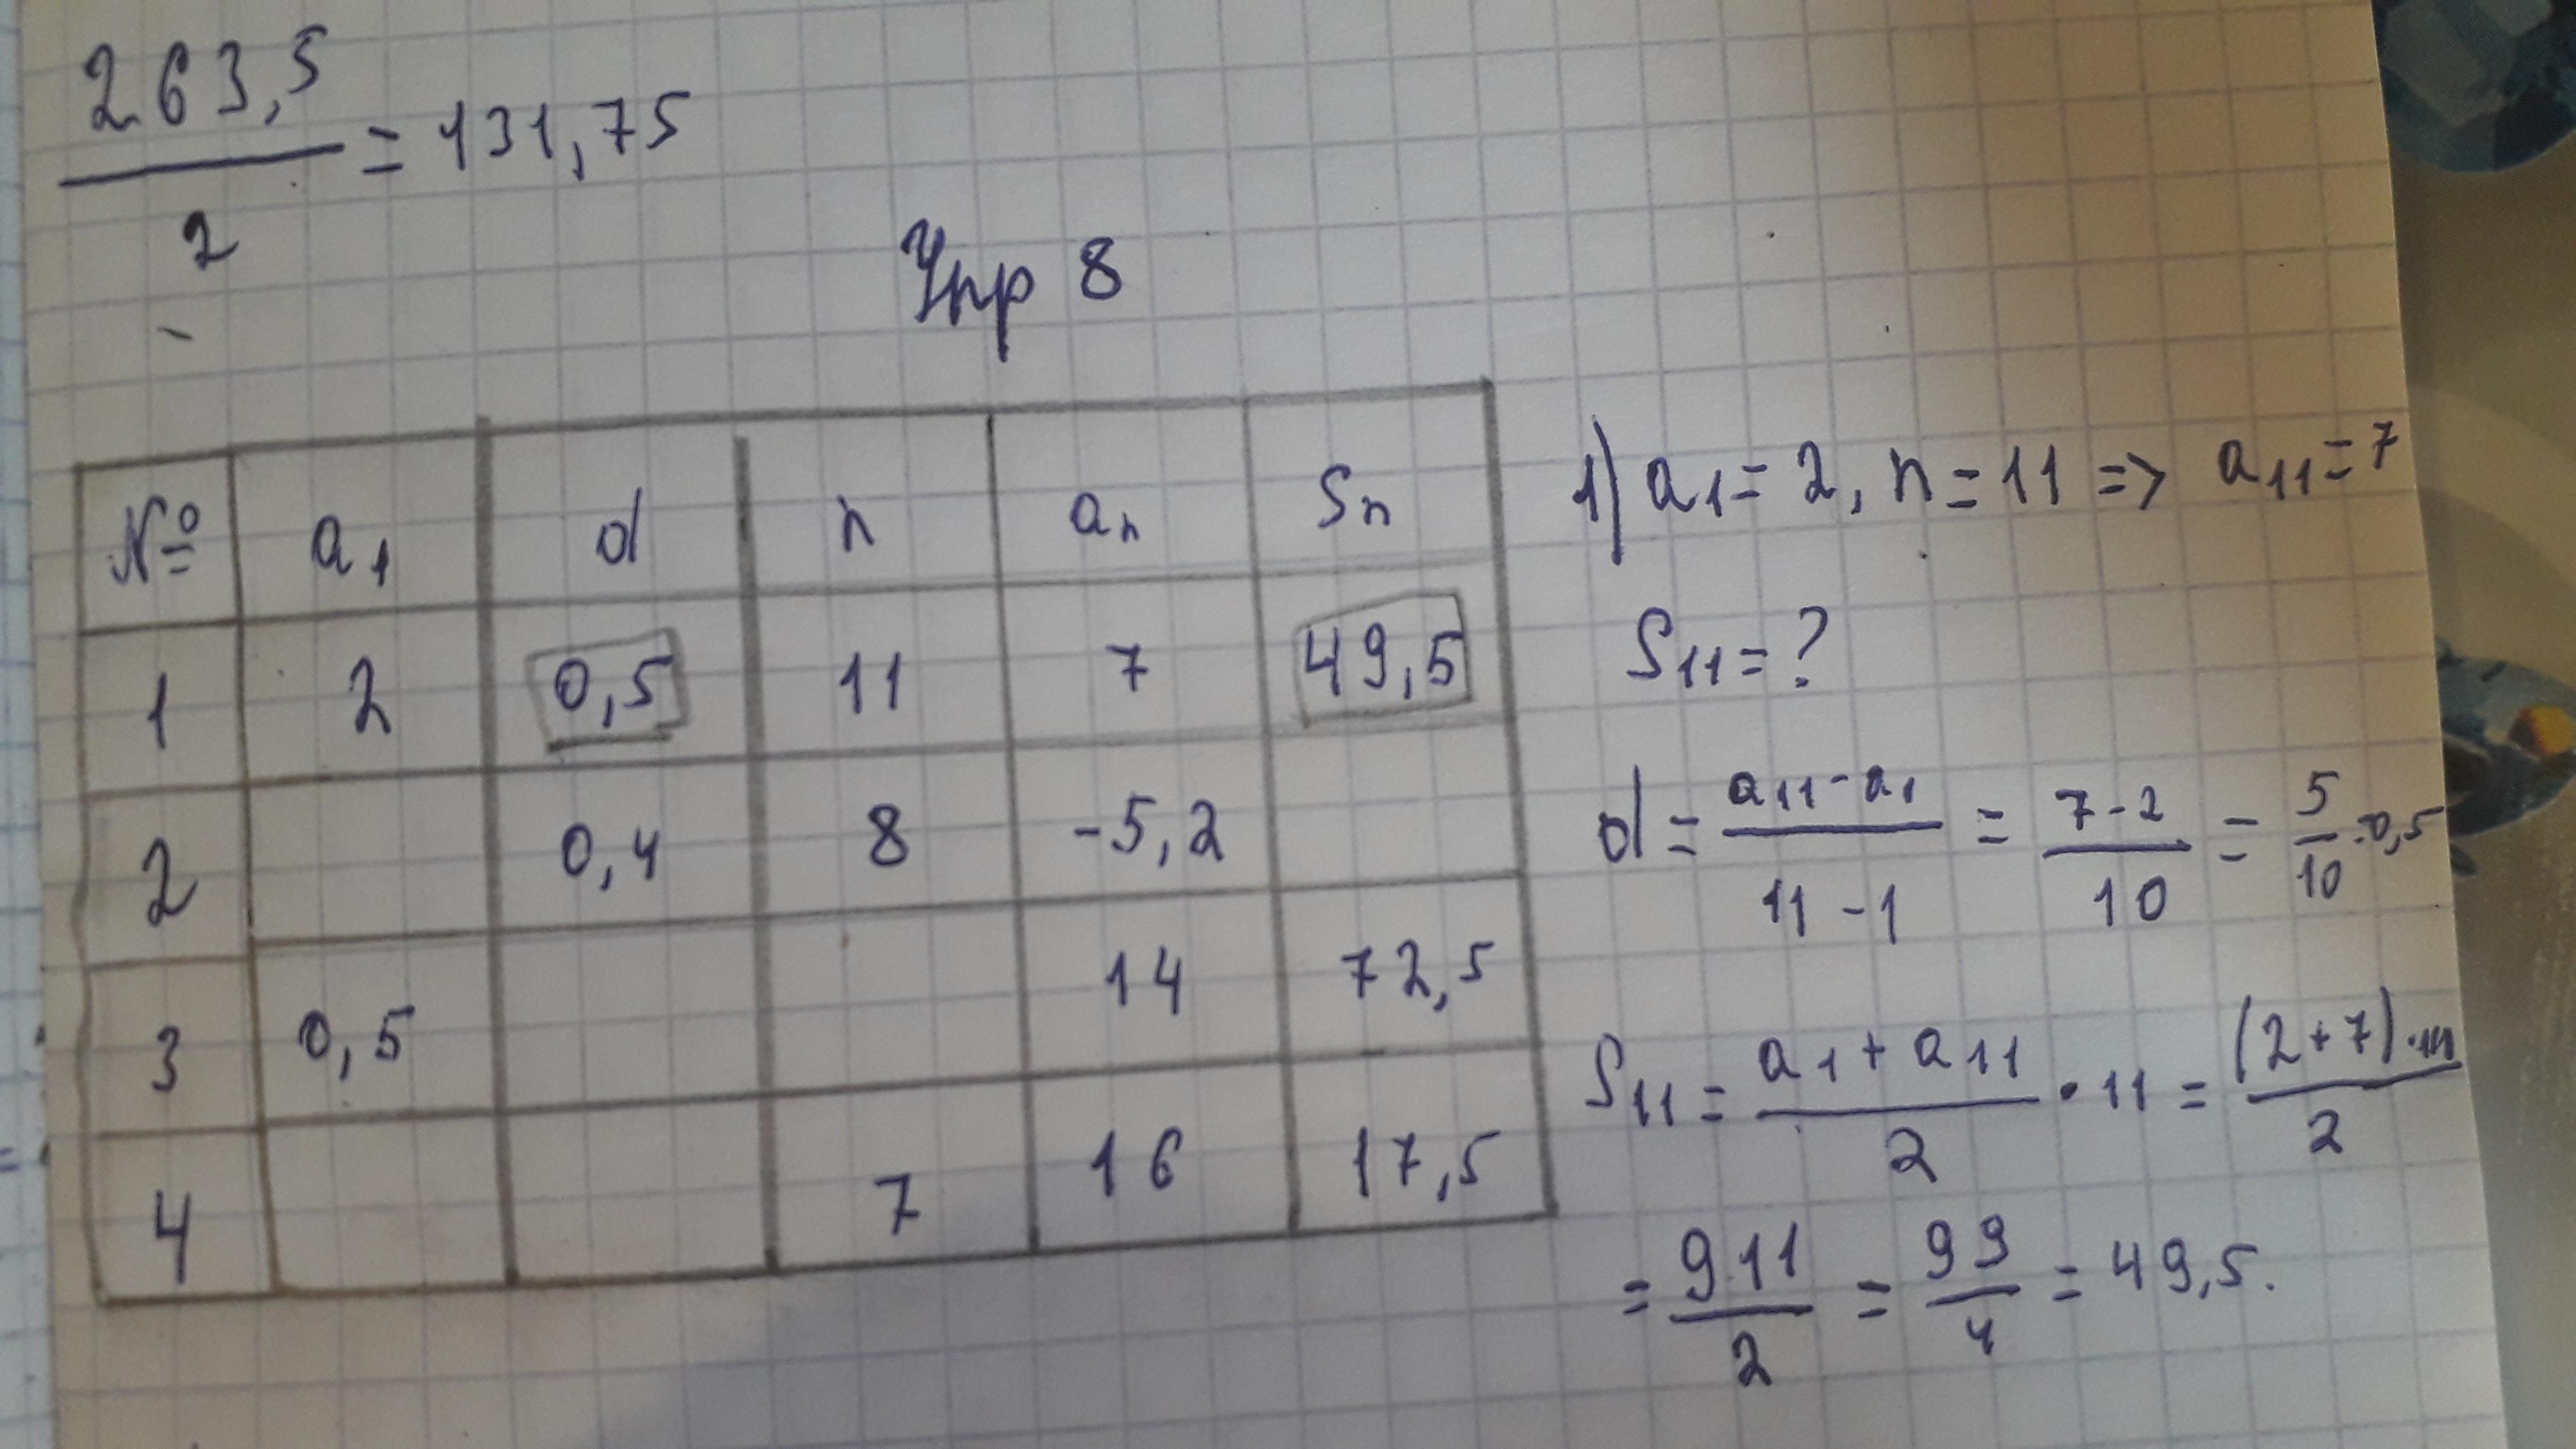 263,5
/2 = 131,75
Упр 8
№ a1 d n an Sn
1 2 0,5 11 7 49,5
2 0,4 8 -5,2
3 0,5 14 72,5
4 7 16 17,5
1) a11 = 2, n = 11 => a11 = 7
S11 = ?
d = (a11 - a1)/(11 - 1) = (7 - 2)/10 = 5/10 = 0,5
S11 = (a1 + a11)/2 · 11 = (2 + 7) · 11/2
= 9 11/2 = 99/4 = 49,5.